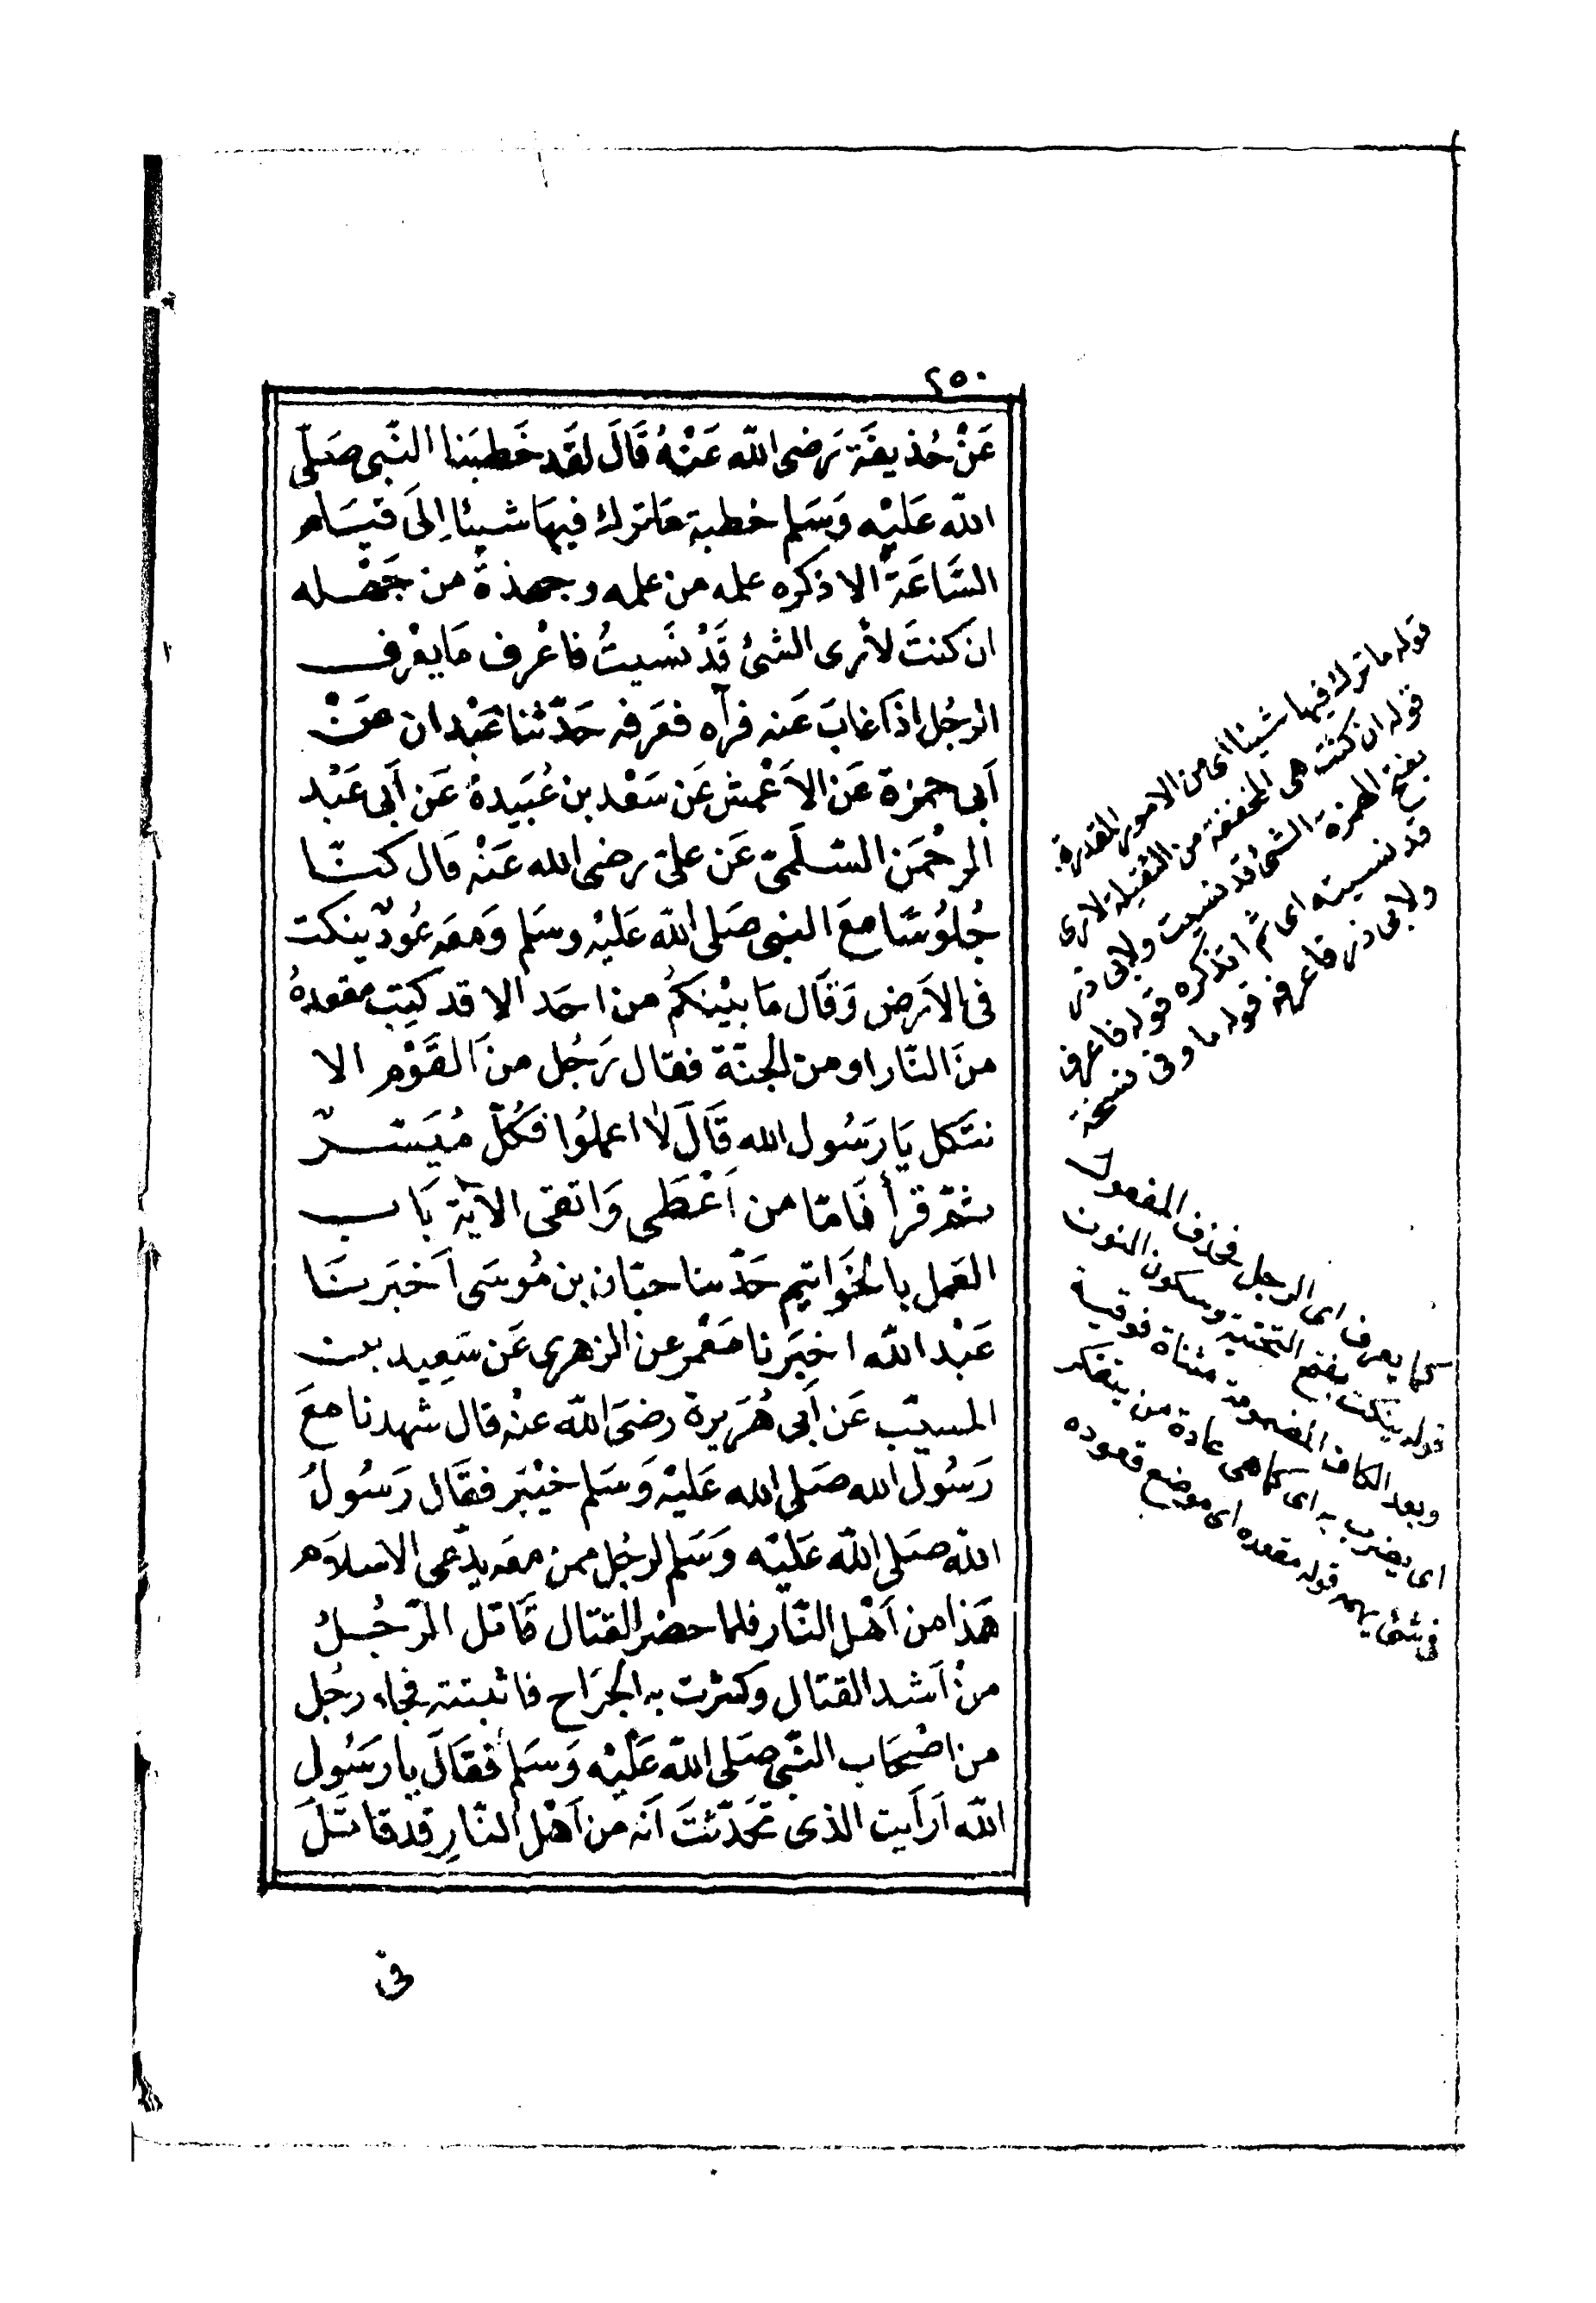 ٢٥٠
عَنْ حُذيفَة رَضى الله عَنْهُ قَالَ لقَد خَطبَنا النّبى صَلّى
الله عَليْه وَسَلم خطبة مَا ترك فيهَا شيئا اِلَى قيَام
السَّاعَة الا ذكره علمه من علمه وجهله من جَهْله
ان كنتَ لأرى الشئ قَدْ نَسيتُ فاعْرف مَا يعْرف
الرجُل اذا غابَ عَنه فرآه فعَرفه حَدّثنا عَبْدان عَنْ
اَبى حمزة عَن الاَعْمش عَن سَعْد بن عُبَيدة عَن اَبى عَبْد
الرحْمَن السّلَمىّ عَن علىّ رضى الله عَنْه قال كنّا
جُلوُسًا معَ النبى صَلى الله عَليْه وسَلم وَمعَه عُودٌ ينكت
فى الاَرض وَقَال مَا بيْنكمُ من احَد الا قد كتِب مقعدهُ
منَ النّار او من الجنّة فقال رَجُل منَ القَوْم الا
نتّكل يَا رَسُول الله قَالَ لا اعملوُا فكُلّ مُيَسّرٌ
ثمّ قرأ فَامّا من اَعْطَى وَاتقى الآيَة بَاب
العَمل بالخَوَاتيم حَدّثنا حبّان بن مُوسَى اَخبَرنَا
عَبْد الله اخبَرنا مَعْمر عن الزهرى عَن سَعِيد بن
المسيّب عَن اَبى هُرَيرة رضىَ الله عنْه قال شهدنا معَ
رَسُول الله صَلى الله عَليْه وَسَلم خيْبَر فقَال رَسُولُ
الله صَلى الله عَليْه وَسَلم لرجُل ممن معَه يدّعى الاسْلاَم
هَذا من اَهْل النّار فلما حضَر القتال قَاتل الرّجُلُ
منْ اَشد القتال وكثرت به الجرَاح فاثبتته فجاء رجُل
من اصْحَاب النّبى صَلى الله عَليْه وَسَلم فقَالَ يا رَسُول
الله اَرَاَيت الذى تحَدّثتَ اَنه من اَهْل النّارِ قد قاتَلَ
فى
قوله ما ترك فيها شيئا اى من الامور المقدرة
قوله ان كنت هى المخففة من الثقيلة لارى
بفتح الهمزة الشئ قد نسيت ولابى ذر
قد نسيته اى ثم اتذكره قوله فاعرف
ولابى ذر فاعرفه قوله ما وفى نسخة
كما يعرف اى الرجل فحذف المفعول
قوله ينكت بفتح التحتية وسكون النون
وبعد الكاف المضمومة مثناة فوقية
اى يضرب به اى كما هى عادة من يتفكر
فى شئ يهمه قوله مقعده اى موضع قعوده